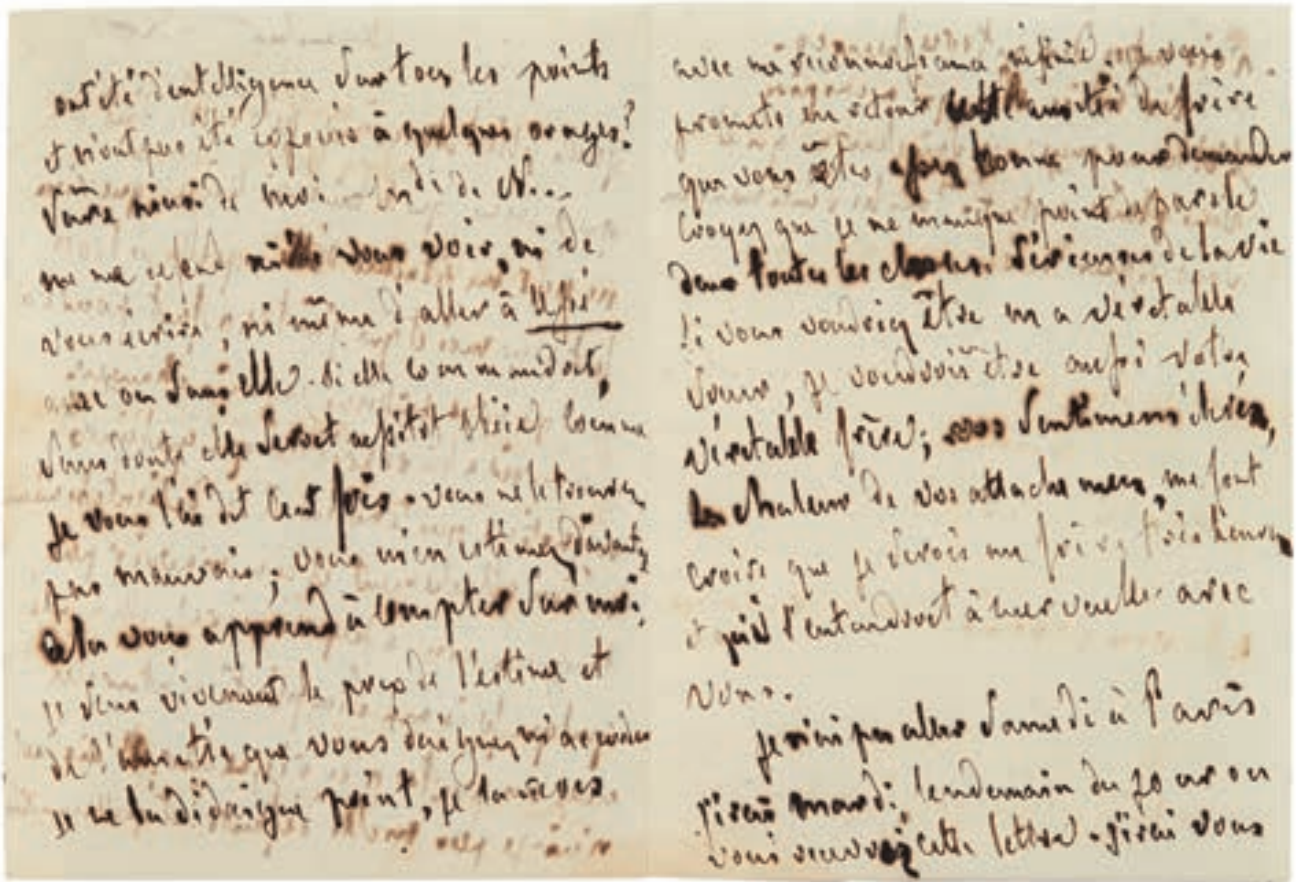 ont été d'intelligence sur tous les points
et n'ont pas été exposés à quelques orages?
de N...
vous voir, ni de
vous écrire, ni même d'aller à
avec ou sans elle. Si elle commandoit,
sans doute elle seroit aussitôt obéie comme
je vous l'ai dit cent fois. vous ne le trouvez
pas mauvais; vous m'en estimez davantage
cela vous apprend à compter sur moi.
je sens vivement le prix de l'estime et
de l'amitié que vous daignez m'accorder
je ne la dédaigne point, je
avec ma reconnoissance infinie. je vous
promets en retour cette amitié de frère
que vous êtes assez bonne pour demander
croyez que je ne manque point de parole
dans toutes les choses sérieuses de la vie
Si vous voudriez être ma véritable
sœur, je voudrois être aussi votre
véritable frère; vos sentimens élevés,
la chaleur de vos attachemens, me font
croire que je serois un frère très heureux
et qui s'entendroit à merveille avec
vous.
je n'irai pas aller Samedi à Paris
j'irai mardi, lendemain du jour où
vous recevrez cette lettre. j'irai vous